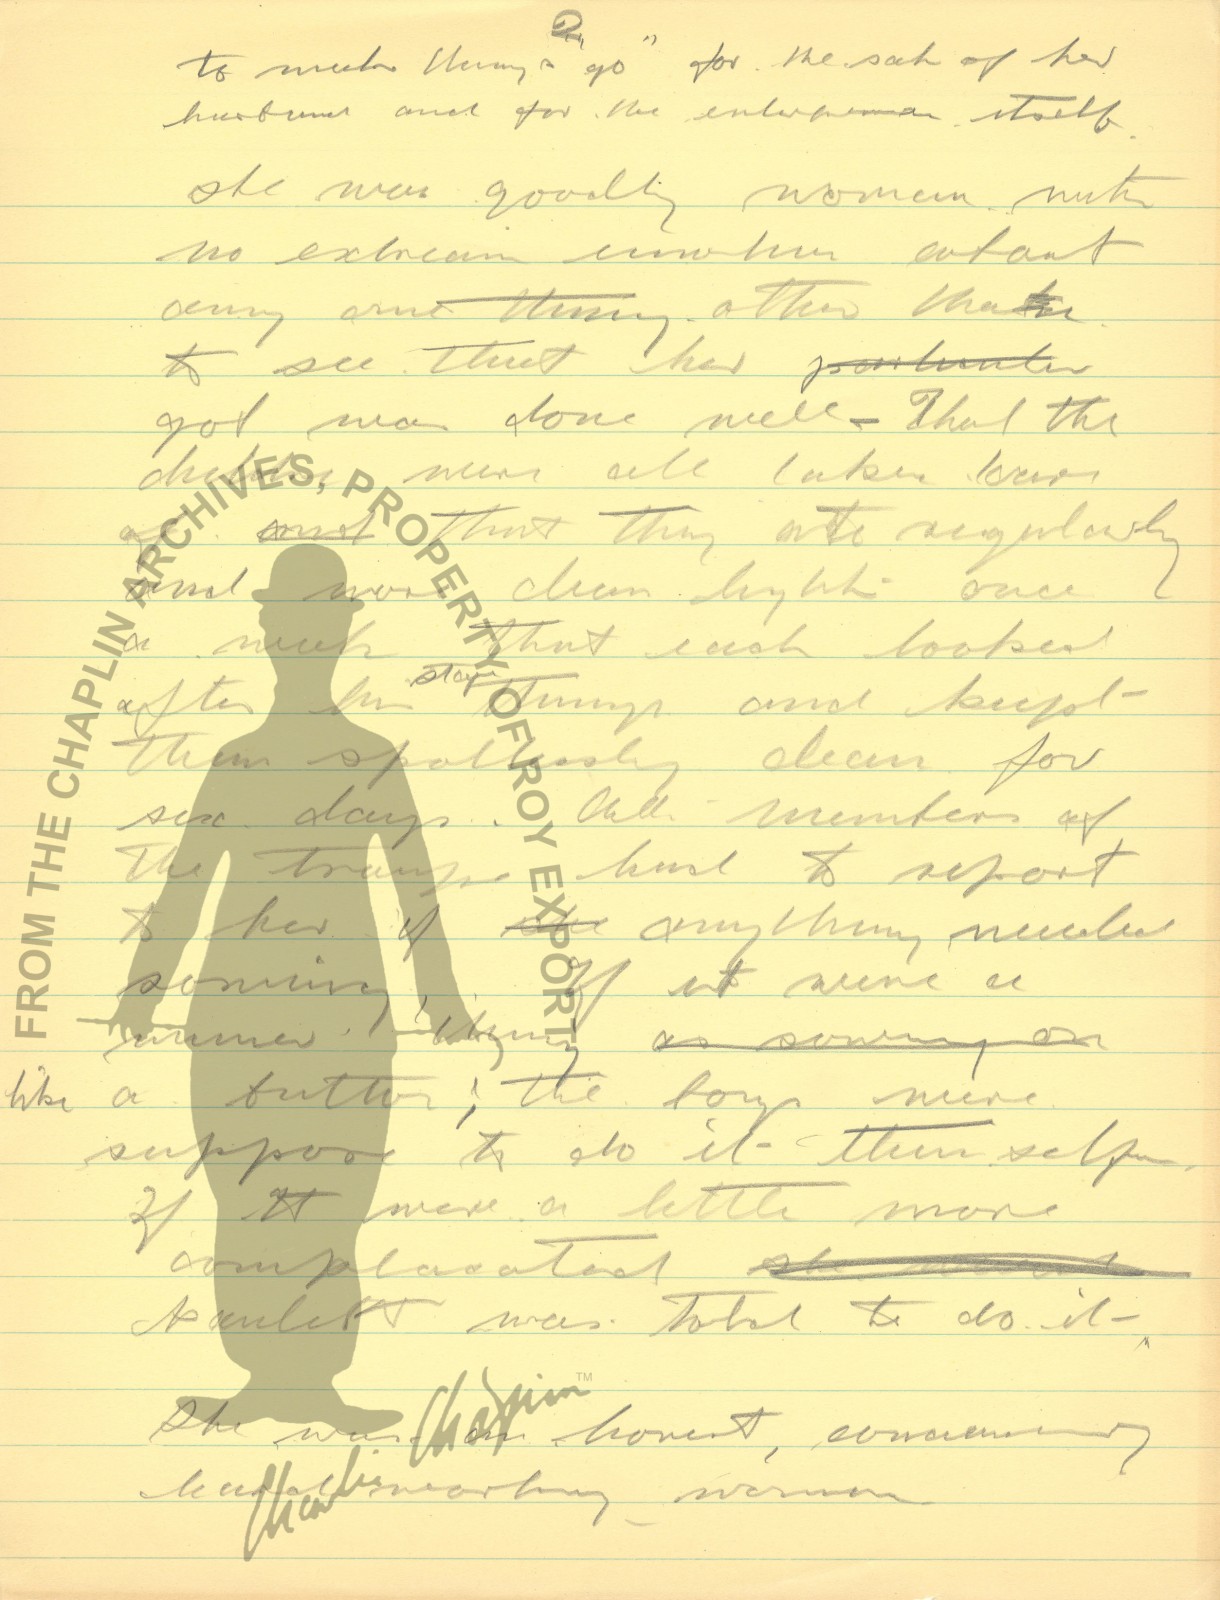 2
to make things "go" for the sake of her
husband and for the itself.
she was goodly women with
no extream about
any one thing other than
to see that her
got was done well - That the
were all taken care
of and that they ate regularly
and wore clean once
a week That each looked
after his stage things and kept
them spotlessly clean for
six days. All members of
the troupe had to report
to her if she anything needed
sewing, If it were a
minor thing as sewing on
like a button, the boys were
suppose to do it - them
If it were a little more
complacated she
was told to do it -
She was an honest,
hard working women
FROM THE CHAPLIN ARCHIVES, PROPERTY OF ROY EXPORT
Charlie Chaplin ™